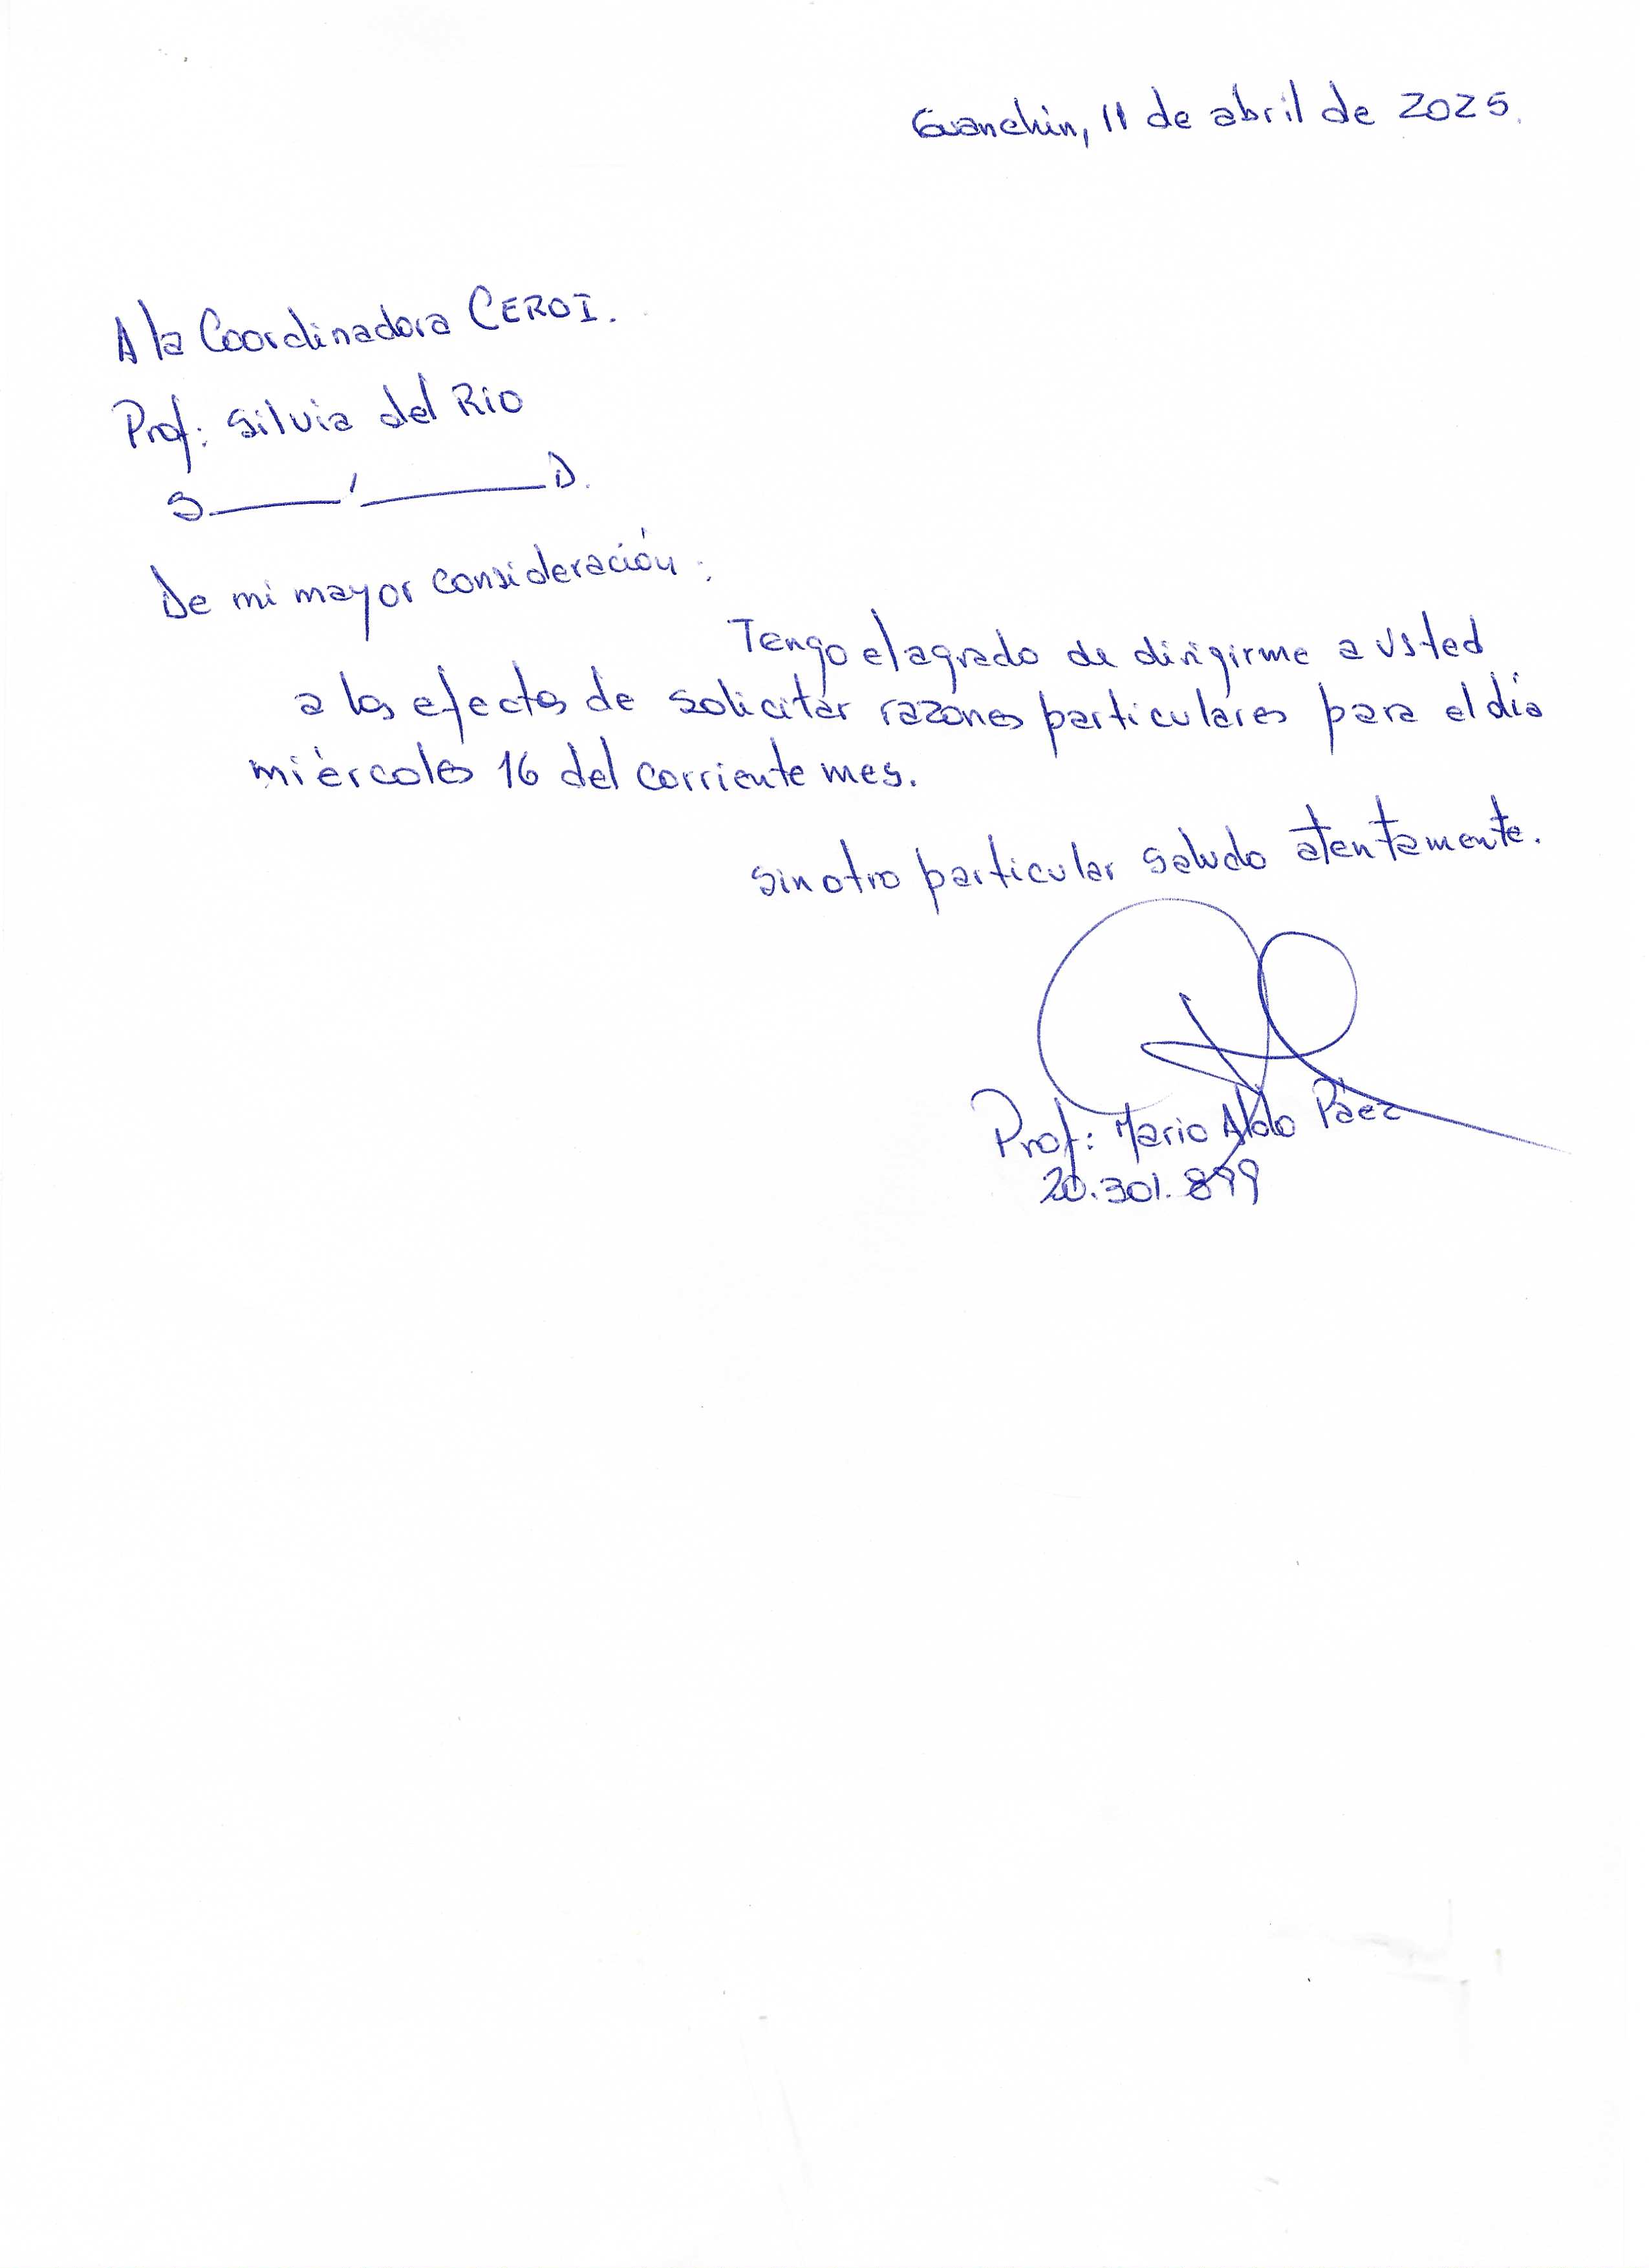 Guanchin, 11 de abril de 2025.
A la Coordinadora CEROI.
Prof: Silvia del Rio
S______/______D.
De mi mayor consideración:
Tengo el agrado de dirigirme a usted
a los efectos de solicitar razones particulares para el día
miércoles 16 del corriente mes.
Sin otro particular saludo atentamente.
Prof: Mario Aldo Páez
20.301.899